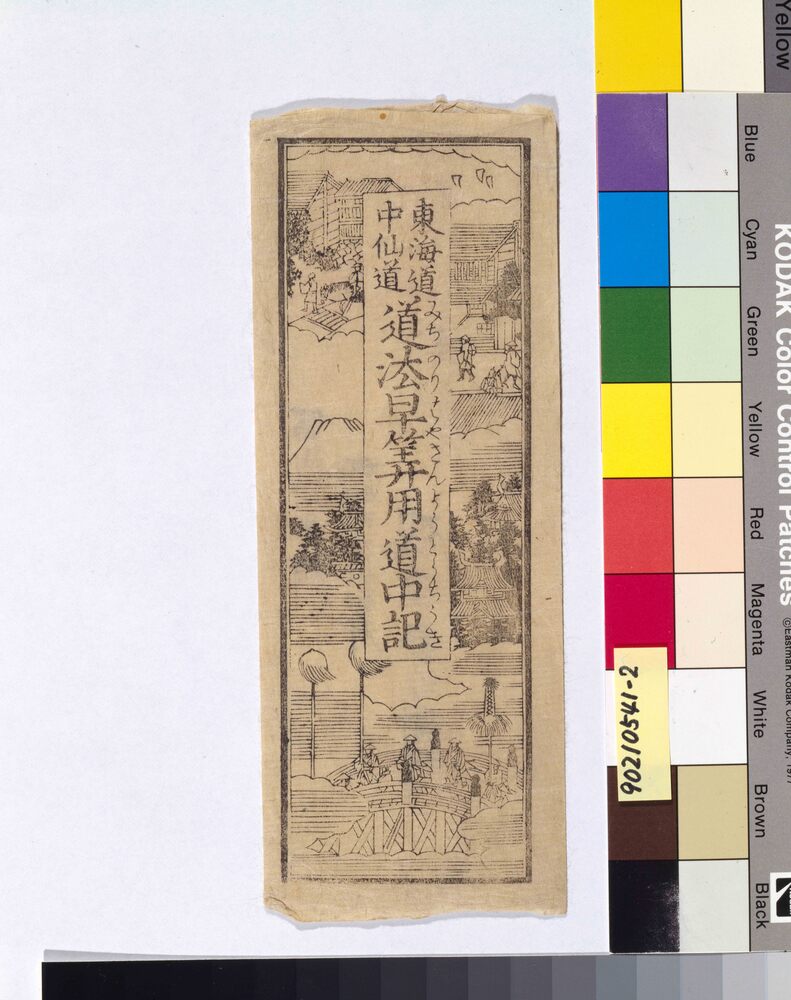 東海道
中仙道
道法早筭用道中記
みちのりはやさんようどうちうき
Yellow
Blue
Cyan
Green
Yellow
Red
Magenta
White
Brown
Black
KODAK Color Control Patches
©Eastman Kodak Company, 1977
90201541-2